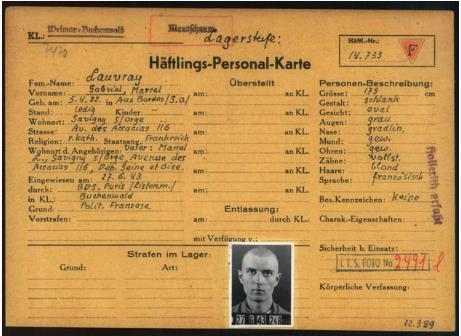 KL.: Weimar-Buchenwald
Lagerstufe:
Häftl.-Nr.:
14.733
F
Häftlings-Personal-Karte
Fam.-Name: Lauvray
Vorname: Gabriel, Marcel
Geb. am: 5.4.22. in Aux Bordes/S.O/
Stand: ledig Kinder: –
Wohnort: Savigny s/Orge
Strasse: Av. des Accacias 116
Religion: r. kath. Staatsang. Frankreich
Wohnort d. Angehörigen: Vater: Marcel
L., Savigny s/Orge, Avenue des
Accacias 116, Dep. Seine et Oise.
Eingewiesen am: 27.6.43
durch: BDS. Paris
in KL.: Buchenwald
Grund: Polit. Franzose
Vorstrafen:
Überstellt
am: an KL.
am: an KL.
am: an KL.
am: an KL.
am: an KL.
am: an KL.
Entlassung:
am: durch KL.:
mit Verfügung v.:
Personen-Beschreibung:
Grösse: 178 cm
Gestalt: schlank
Gesicht: oval
Augen: grau
Nase: gradlin.
Mund: gew.
Ohren: gew.
Zähne: vollst.
Haare: blond
Sprache: französisch
Bes. Kennzeichen: keine
Charak.-Eigenschaften:
Sicherheit b. Einsatz:
I.T.S. FOTO No. 2491
Körperliche Verfassung:
Hollerith erfaßt
Strafen im Lager:
Grund: Art:
27 6 43 248
12.3.89